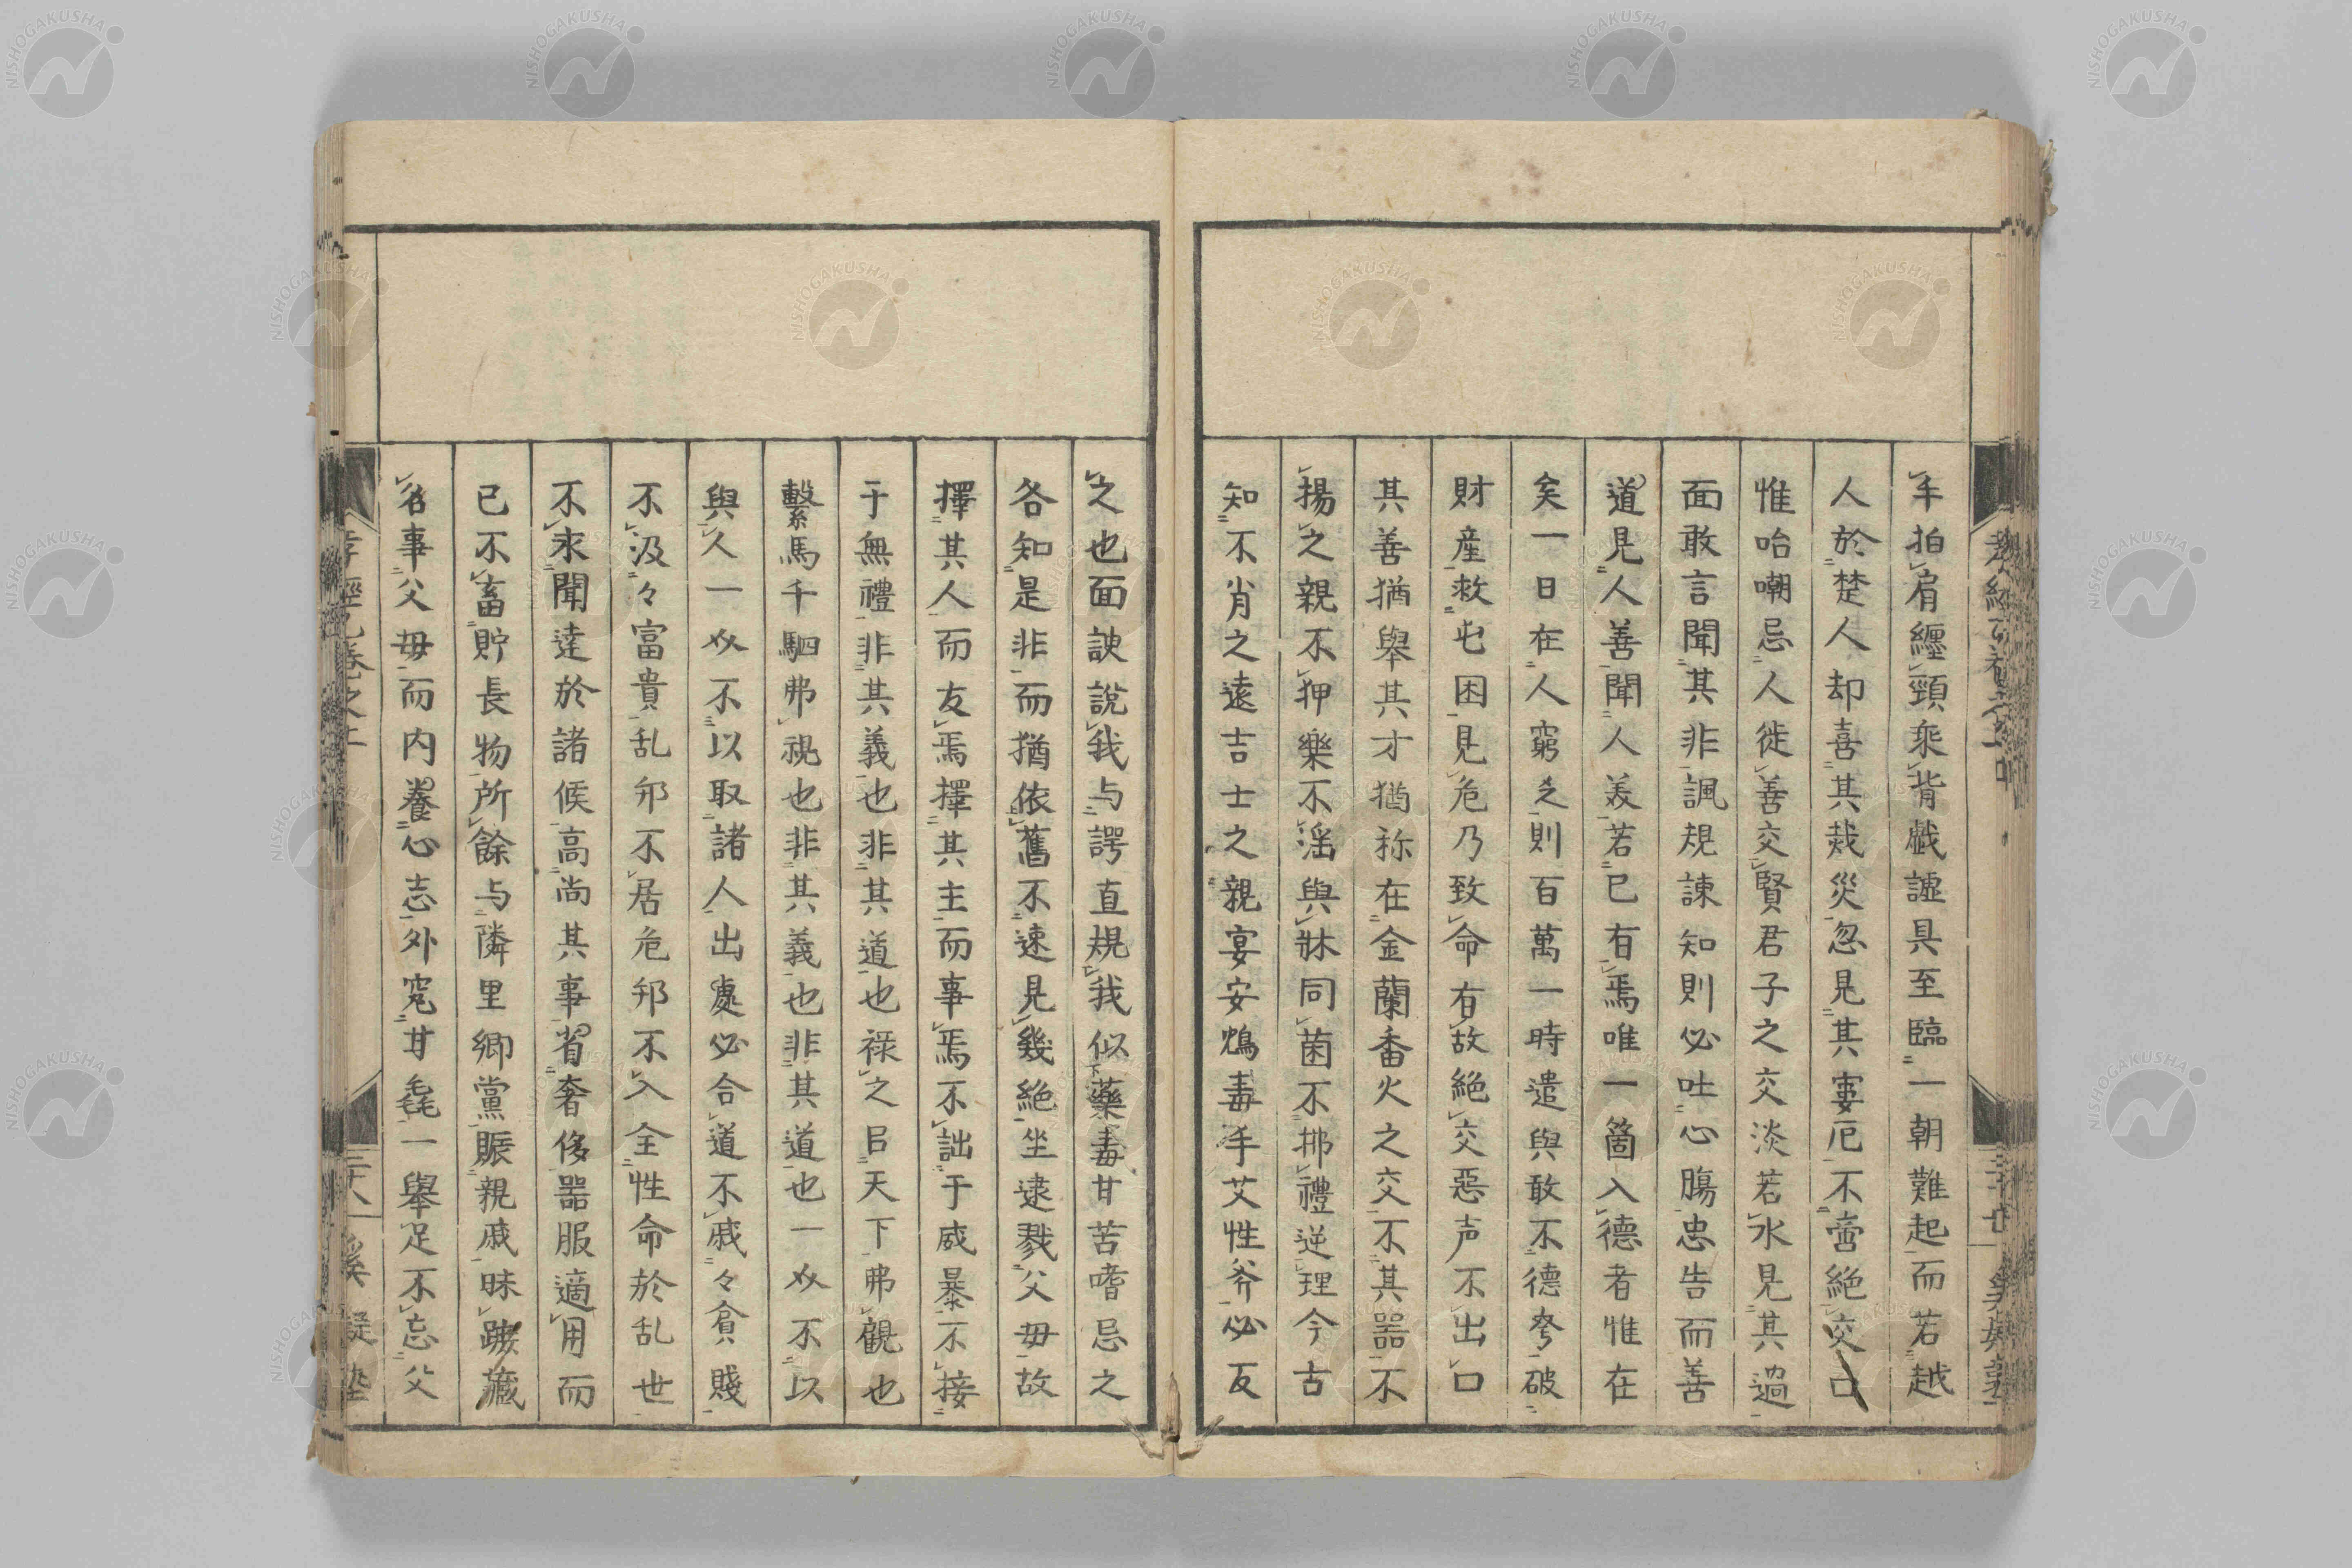 手拍肩纏頸乘背戯謔具至臨一朝難起而若越
人於楚人却喜其烖災忽見其寠厄不啻絶交口
惟咍嘲忌人徙善交賢君子之交淡若水見其過
面敢言聞其非諷規諌知則必吐心膓忠告而善
道見人善聞人美若已有焉唯一箇入德者惟在
矣一日在人窮乏則百萬一時遣與敢不德夸破
財産救屯困見危乃致命有故絶交惡声不出口
其善猶舉其才猶称在金蘭番火之交不其器不
揚之親不狎樂不滛與牀同菌不拂禮逆理今古
知不肖之遠吉士之親宴安鴆毒手艾性斧必反
之也面諛說我与諤直規我似藥毒甘苦嗜忌之
各知是非而猶依舊不速見幾絶坐逮戮父毋故
擇其人而友焉擇其主而事焉不詘于威暴不接
于無禮非其義也非其道也禄之㠯天下弗觀也
繫馬千駟弗視也非其義也非其道也一介不以
與久一介不以取諸人出處必合道不戚々貧賤
不汲々富貴乱邦不居危邦不入全性命於乱世
不求聞達於諸候高尚其事省奢侈器服適用而
已不畜貯長物所餘与隣里鄉黨賑親戚昧䠂藏
名事父毋而内養心志外究甘毳一舉足不忘父